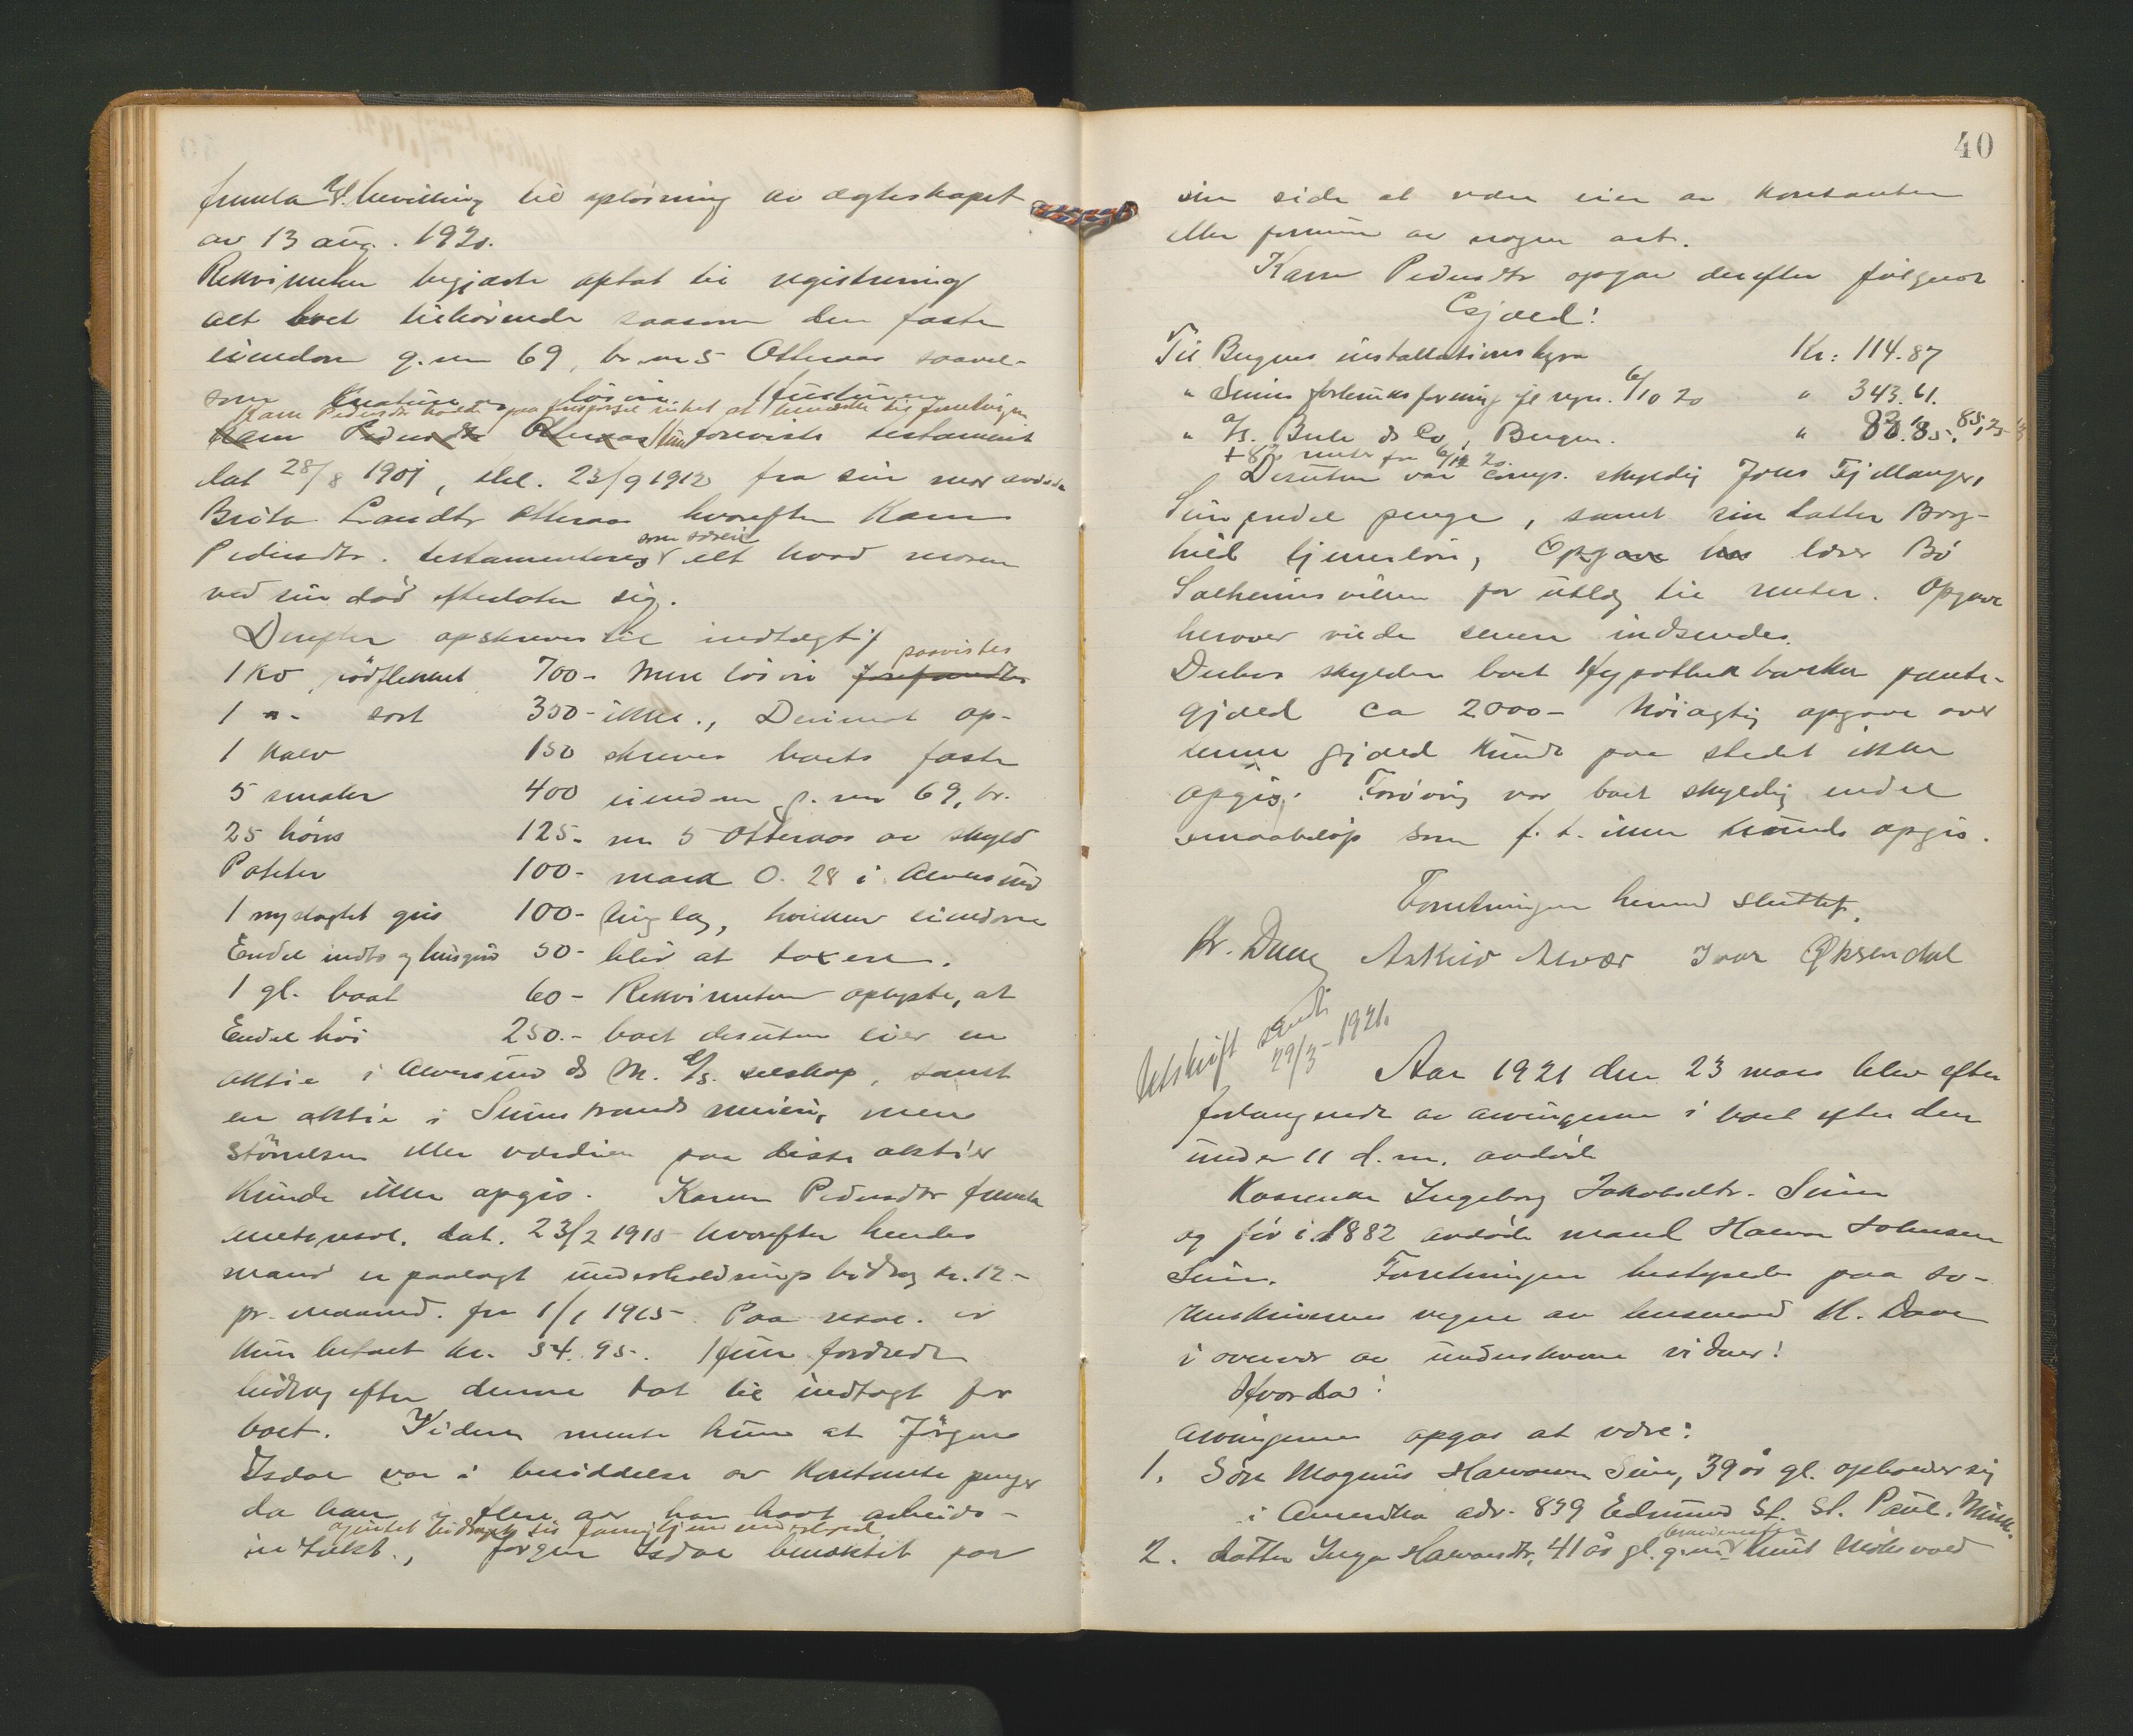 fremla kgl. bevilling til opløsning av ægteskapet
av 13 aug. 1920.
Rekvirenten begjærte optat til registrering
alt boet tilhørende saasom den faste
eiendom g.nr 69, br.nr 5 Otteraas saavel-
som løsøre.
Karen Pedersdtr hadde paa forespørsel intet at bemerke til forretningen
Karen Pedersdtr Otteraas Hun foreviste testament
dat 28/8 1901, thl. 23/9 1912 fra sin mor avdøde
Brita Larsdtr Otteraas hvorefter Karen
som særeie
Pedersdtr. testamenteres alt hvad moren
ved sin død efterlater sig.
Derefter opskreves til indtægt:
paavistes
1 ko rødflekket 700- Mere løsøre forefandtes
1 -"- sort 350- ikke., Derimot op-
1 kalv 150 skreves boets faste
5 smaler 400 eiendom g. nr 69, br.
25 høns 125- nr 5 Otteraas av skyld
Poteter 100- mark 0.28 i Alversund
1 nyslagtet gris 100- tinglag, hvilken eiendom
Endel indbo og husgeraad 50- blir at taxere.
1 gl. baat 60- Rekvirenten oplyste, at
Endel høi 250.- boet desuten eier en
aktie i Alversund & M. A/S. selskap, samt
en aktie i Seimstrands meieri, men
størrelsen eller værdien paa disse aktier
kunde ikke opgis. Karen Pedersdtr fremla
amtsresol. dat. 23/2 1915 hvorefter hendes
mand er paalagt underholdningsbidrag kr. 12-
pr. maaned. fra 1/1 1915. Paa resol. er
kun betalt kr. 54.95. Hun fordrede
bidrag efter denne tat til indtægt for
boet. Videre mente hun at Jørgen
Isdal var i besiddelse av kontante penger
da han i flere aar har havt arbeids-
og intet bidraget til familiens underhold.
intekt., Jørgen Isdal benektet paa
40
sin side at være eier av kontanter
eller formue av nogen art.
Karen Pedersdtr opgav derefter følgende
Gjæld:
Til Bergens installationsbyra Kr: 114.87
" Seims forbruksforening if regn. 6/10 20 " 343.61.
" A/S. Bull & Co, Bergen. " 82.85, 85,25
+ 8% renter fra 6/12 20.
Desuten var comp. skyldig Johs Fjellanger,
Seim endel penge, samt sin datter Borg-
hild tjenerløn, Opgave hos lærer Bø
Salhusvikn for utlæg til renter. Opgave
herover vilde senere indsendes.
Derhos skylder boet Hypothekbanken pante-
gjæld ca 2000- Nøiagtig opgave over
denne gjæld kunde paa stedet ikke
opgis. Forøvrig var boet skyldig endel
smaabeløp som f. t. ikke kunde opgis.
Forretningen hermed sluttet.
Kr. Daae Askild Alvær Ivar Øksendal
Utskrift sendt
29/3-1921.
Aar 1921 den 23 mars blev efter
forlangende av arvingerne i boet efter den
under 11 d.m. avdøde
Ingeborg Jakobsdtr. Seim
og før i 1882 avdøde mand Halvor Johnsen
Seim. Forretningen bestyredes paa so-
renskriverens vegne av lensmand K. Daae
i overvær av underskrevne vidner!
Hvorda:
Arvingerne opgas at være:
1. Søn Magnus Halvorsen Seim, 39 år gl. opholder sig
i Amerika adr. 839 Edmund St. St. Paul. Minn.
2. datter Inga Halvorsdtr, 41 år gl. g.m. Knut